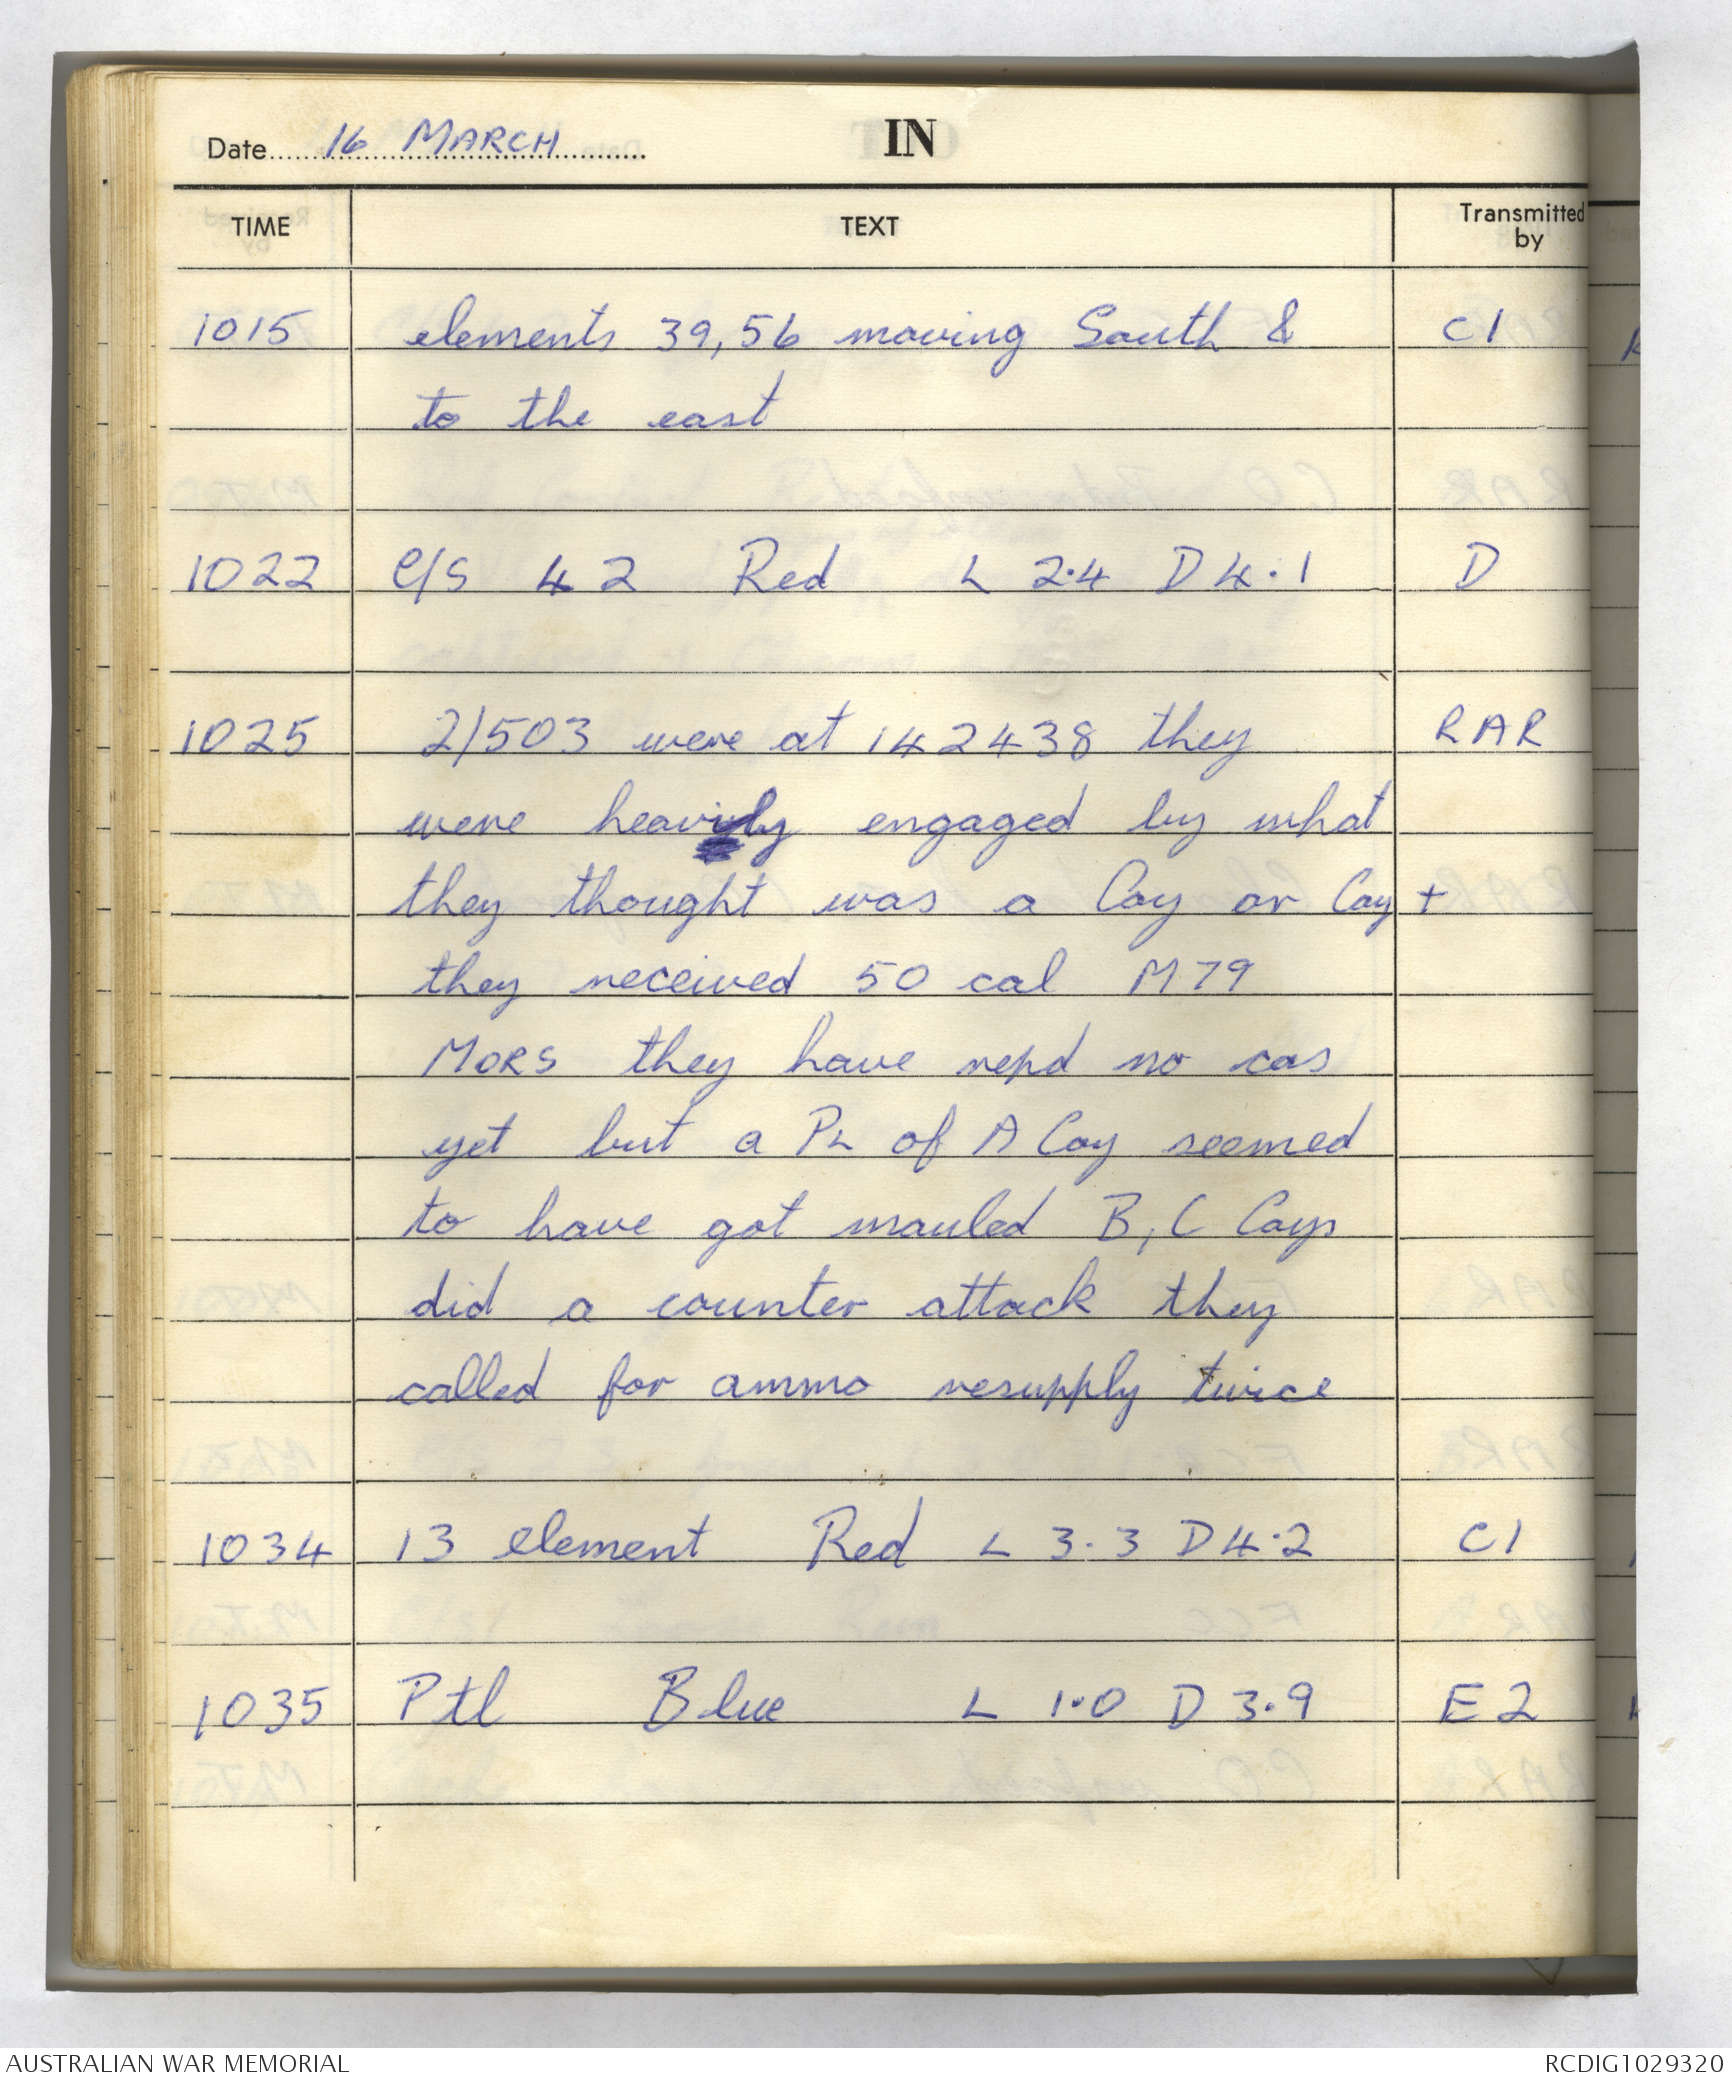 Date 16 MARCH IN
TIME TEXT Transmitted by
1015 elements 39,56 moving South & C1
to the east
1022 C/S 42 Red L 2.4 D 4.1 D
1025 2/503 were at 142438 they RAR
were heavily engaged by what
they thought was a Coy or Coy +
they received 50 cal M79
MORS they have repd no cas
yet but a PL of A Coy seemed
to have got mauled B, C Coys
did a counter attack they
called for ammo resupply twice
1034 13 element Red L 3.3 D 4.2 C1
1035 Ptl Blue L 1.0 D 3.9 E2
AUSTRALIAN WAR MEMORIAL RCDIG1029320